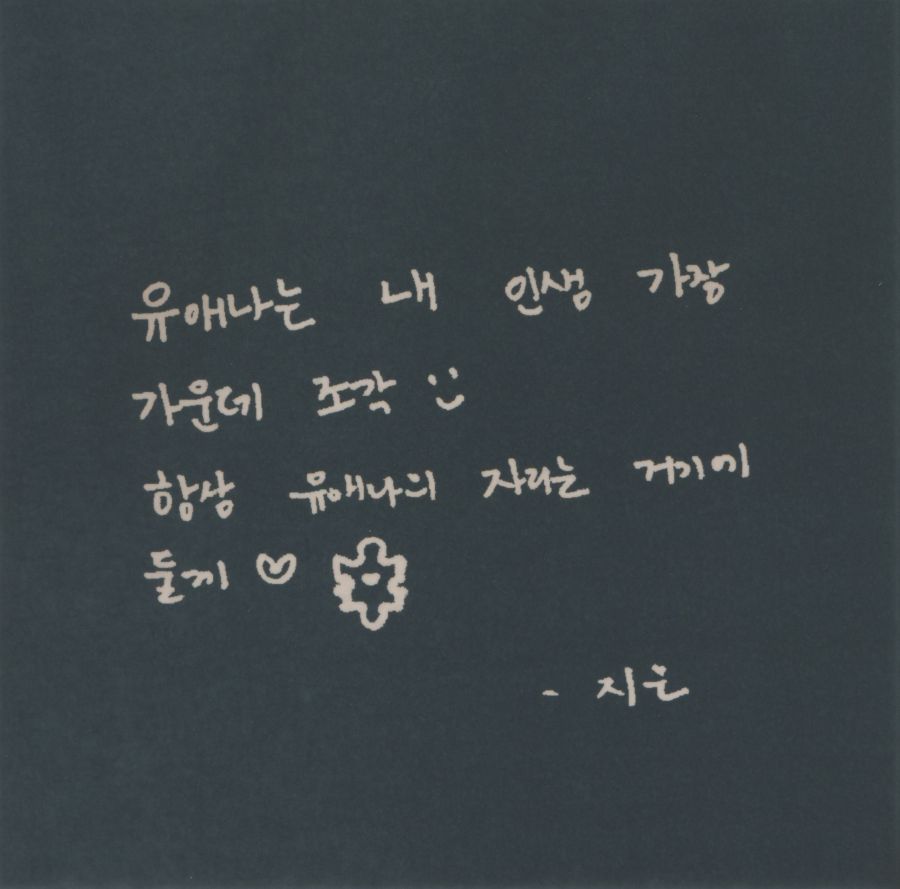 유애나는 내 인생 가장
가운데 조각
항상 유애나의 자리는 거기에
둘께
- 지은